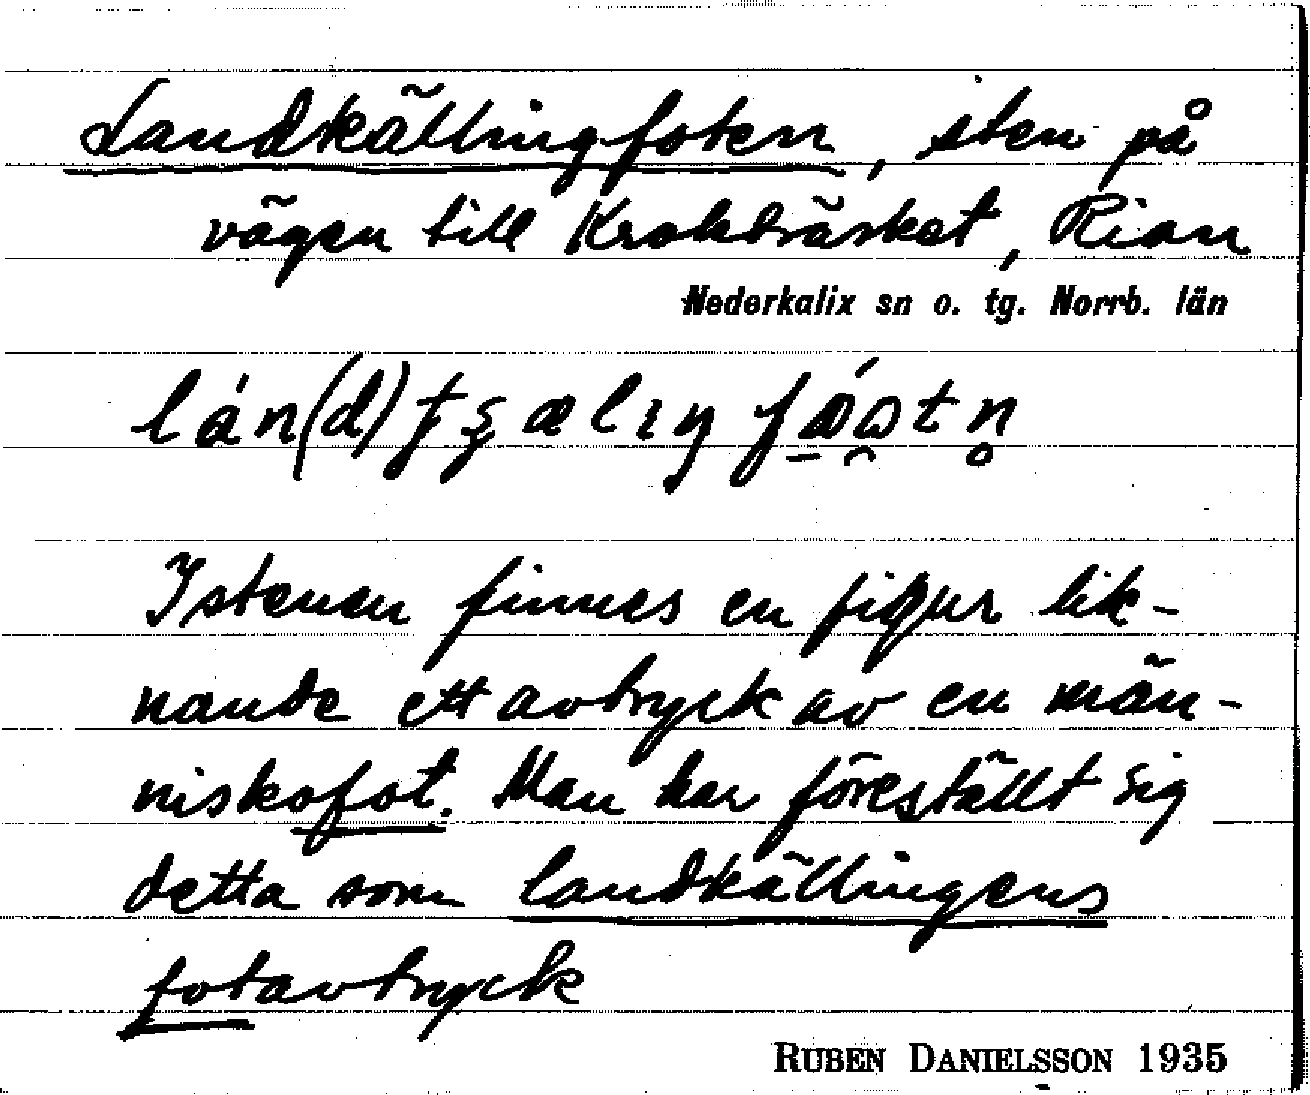 Landkällingfoten, sten på
vägen till Krokträsket, Rian
Nederkalix sn o. tg. Norrb. län
Istenen finnes en figur lik-
nande ett avtryck av en män-
niskofot. Man har föreställt sig
detta som landkällingens
fotavtryck
RUBEN DANIELSSON 1935